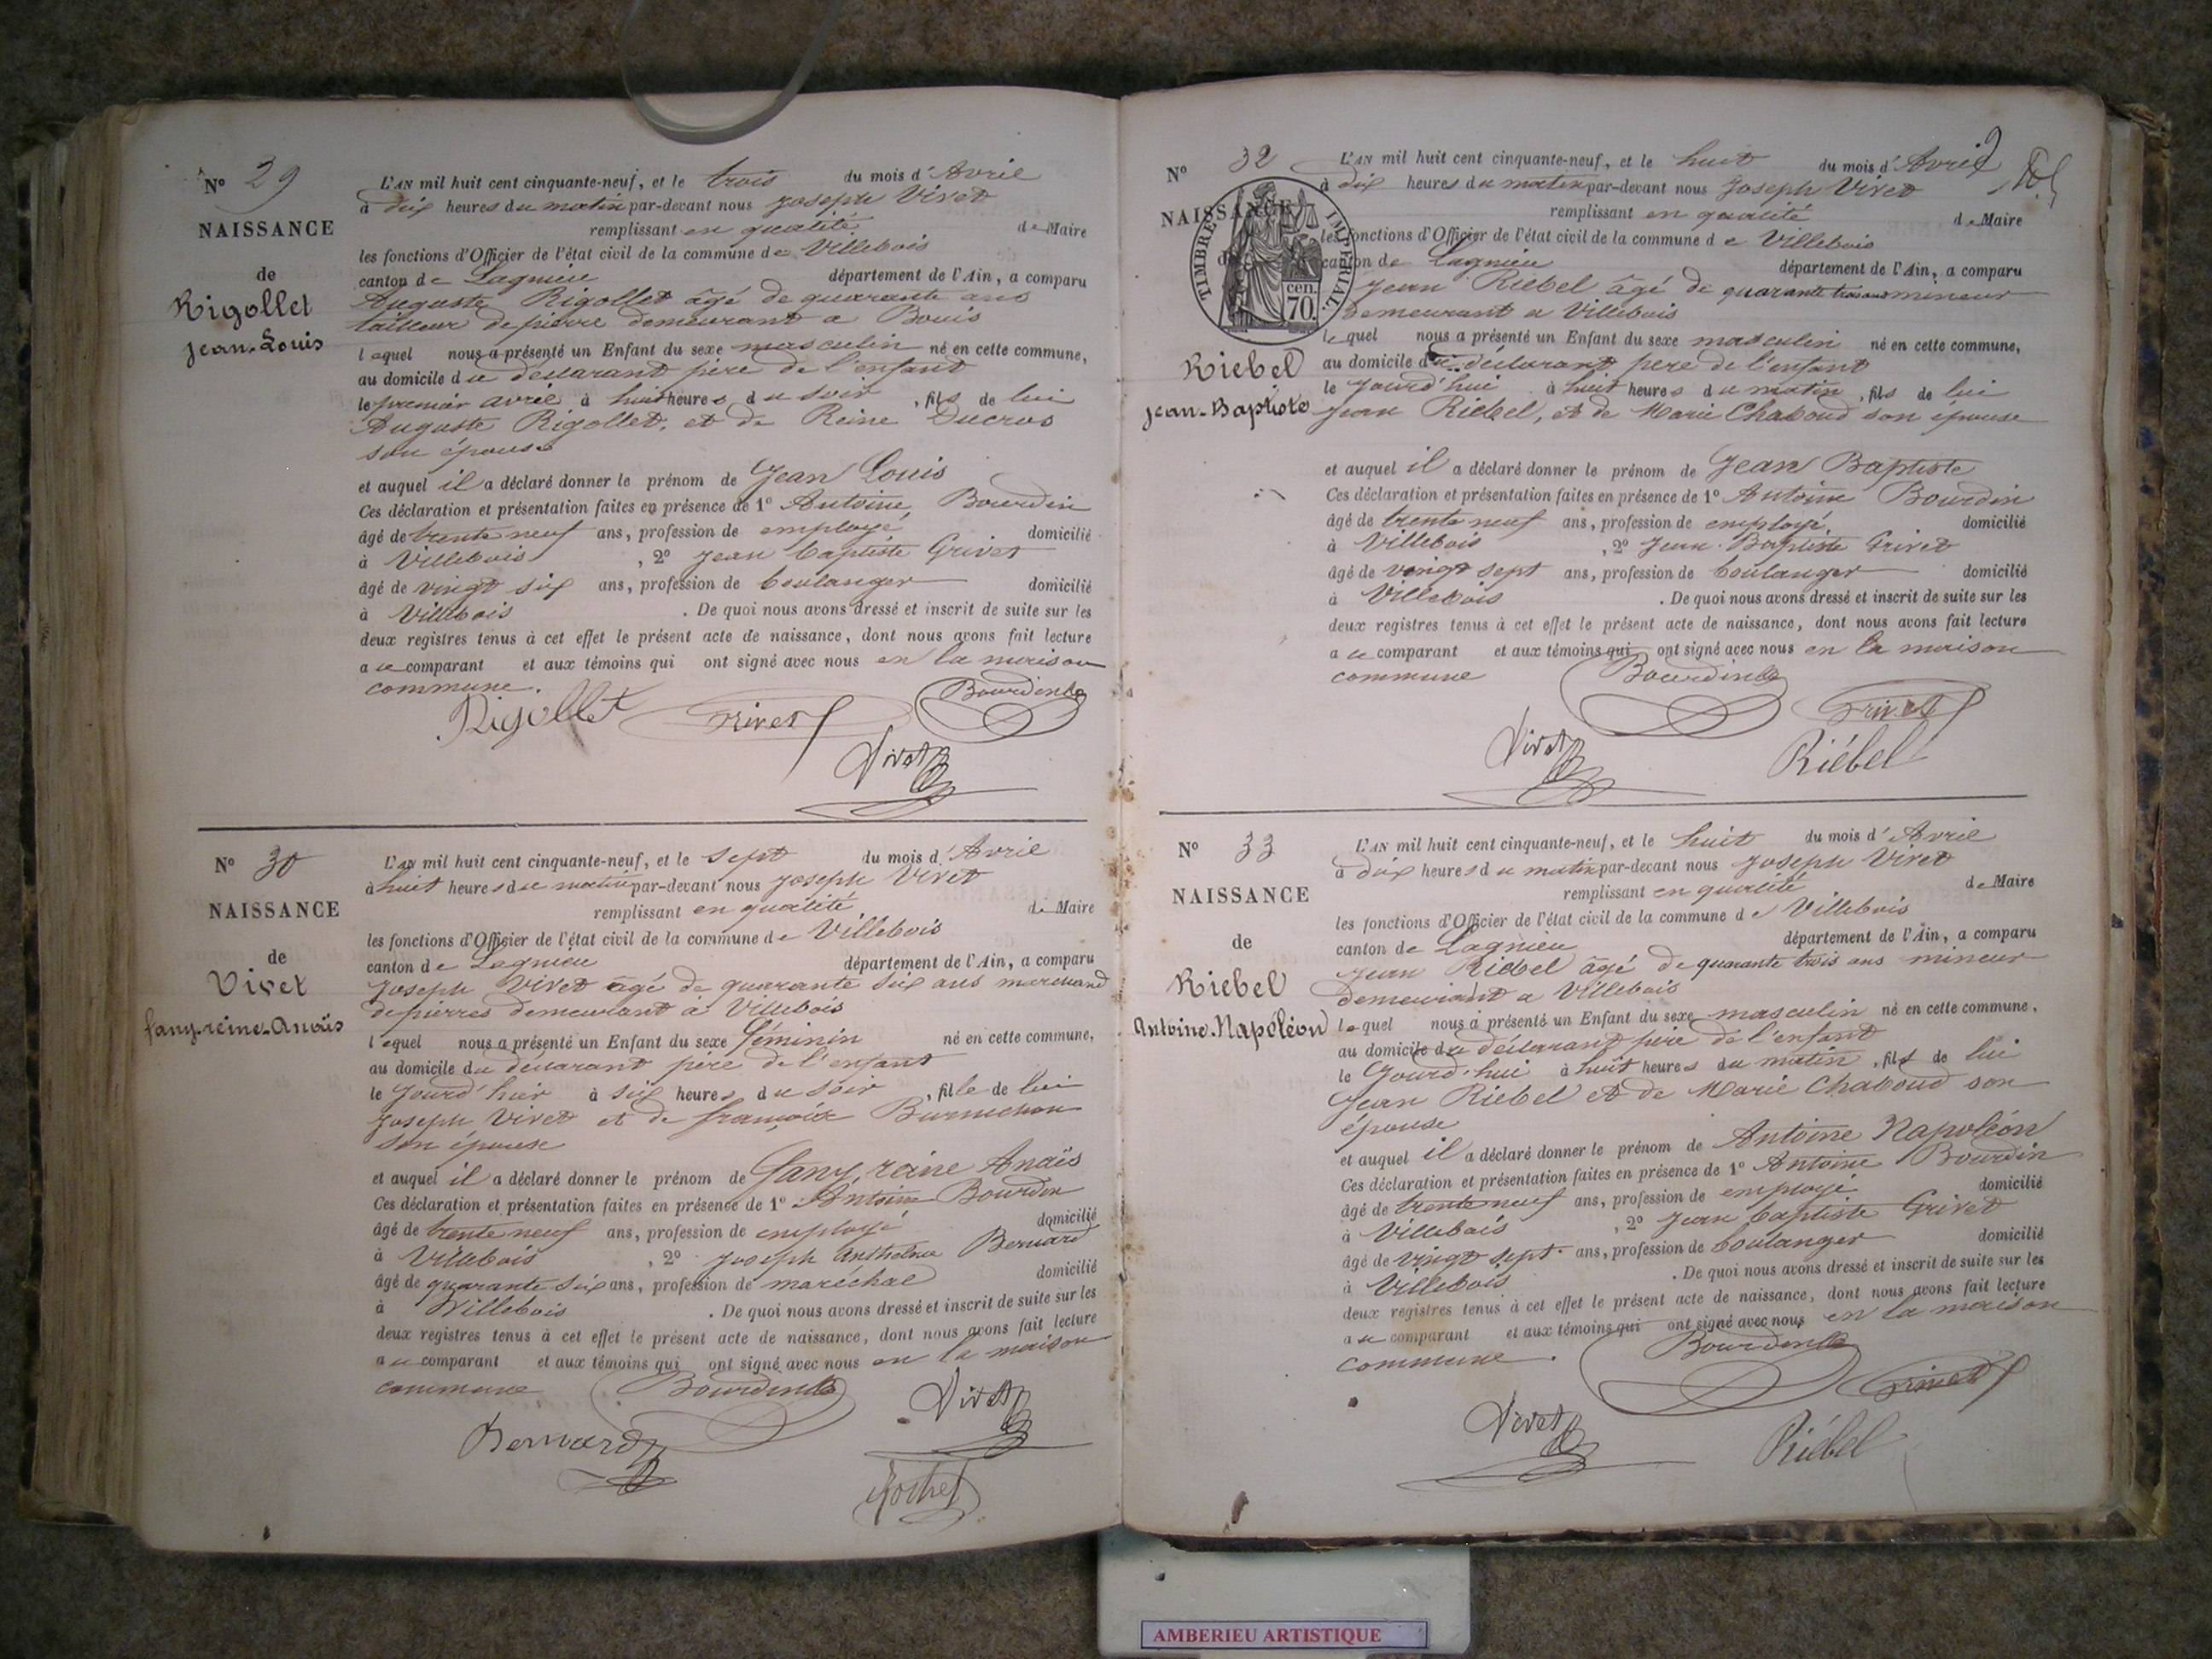 Nº 29
NAISSANCE
de
Rigollet
Jean-Louis
L'AN mil huit cent cinquante-neuf, et le trois du mois d'Avril
à dix heures du matin par-devant nous Joseph Vivet
remplissant en qualité de Maire
les fonctions d'Officier de l'état civil de la commune de Villebois
canton de Lagnieu département de l'Ain, a comparu
Auguste Rigollet âgé de quarante ans
tailleur de pierre demeurant a Bouis
lequel nous a présenté un Enfant du sexe masculin né en cette commune,
au domicile du déclarant père de l'enfant
le premier avril à huit heures du soir, fils de lui
Auguste Rigollet, et de Reine Ducros
son épouse
et auquel il a déclaré donner le prénom de Jean Louis
Ces déclaration et présentation faites en présence de 1º Antoine Bourdin
âgé de trente neuf ans, profession de employé domicilié
à Villebois, 2º Jean baptiste Grivet
âgé de vingt six ans, profession de boulanger domicilié
à Villebois. De quoi nous avons dressé et inscrit de suite sur les
deux registres tenus à cet effet le présent acte de naissance, dont nous avons fait lecture
au comparant et aux témoins qui ont signé avec nous en la maison
commune.
Rigollet Grivet Bourdin
Vivet
Nº 30
NAISSANCE
de
Vivet
fany-reine-Anaïs
L'AN mil huit cent cinquante-neuf, et le sept du mois d'Avril
à huit heures du matin par-devant nous Joseph Vivet
remplissant en qualité de Maire
les fonctions d'Officier de l'état civil de la commune de Villebois
canton de Lagnieu département de l'Ain, a comparu
Joseph Vivet âgé de quarante six ans marchand
de pierres demeurant à Villebois
lequel nous a présenté un Enfant du sexe féminin né en cette commune,
au domicile du déclarant père de l'enfant
le Jourd'hier à six heures du soir, fille de lui
Joseph Vivet et de françoise
son épouse
et auquel il a déclaré donner le prénom de fany, reine Anaïs
Ces déclaration et présentation faites en présence de 1º Antoine Bourdin
âgé de trente neuf ans, profession de employé domicilié
à Villebois, 2º Joseph Anthelme Bernard
âgé de quarante six ans, profession de maréchal domicilié
à Villebois. De quoi nous avons dressé et inscrit de suite sur les
deux registres tenus à cet effet le présent acte de naissance, dont nous avons fait lecture
au comparant et aux témoins qui ont signé avec nous en la maison
commune Bourdin Vivet
Bernard
Nº 32
NAISSANCE
TIMBRE IMPÉRIAL.
cen.
70.
Riebel
Jean-Baptiste
L'AN mil huit cent cinquante-neuf, et le huit du mois d'Avril
à dix heures du matin par-devant nous Joseph Vivet
remplissant en qualité de Maire
les fonctions d'Officier de l'état civil de la commune de Villebois
canton de Lagnieu département de l'Ain, a comparu
Jean Riebel âgé de quarante trois ans mineur
demeurant a Villebois
lequel nous a présenté un Enfant du sexe masculin né en cette commune,
au domicile du déclarant pere de l'enfant
le Jourd'hui à huit heures du matin, fils de lui
Jean Riebel, et de Marie Chaboud son épouse
et auquel il a déclaré donner le prénom de Jean Baptiste
Ces déclaration et présentation faites en présence de 1º Antoine Bourdin
âgé de trente neuf ans, profession de employé domicilié
à Villebois, 2º Jean-Baptiste Grivet
âgé de vingt sept ans, profession de boulanger domicilié
à Villebois. De quoi nous avons dressé et inscrit de suite sur les
deux registres tenus à cet effet le présent acte de naissance, dont nous avons fait lecture
au comparant et aux témoins qui ont signé avec nous en la maison
commune Bourdin Grivet
Vivet Riébel
Nº 33
NAISSANCE
de
Riebel
Antoine-Napoléon
L'AN mil huit cent cinquante-neuf, et le huit du mois d'Avril
à dix heures du matin par-devant nous Joseph Vivet
remplissant en qualité de Maire
les fonctions d'Officier de l'état civil de la commune de Villebois
canton de Lagnieu département de l'Ain, a comparu
Jean Riebel âgé de quarante trois ans mineur
demeurant a Villebois
lequel nous a présenté un Enfant du sexe masculin né en cette commune,
au domicile du déclarant père de l'enfant
le Jourd'hui à huit heures du matin, fils de lui
Jean Riebel et de Marie Chaboud son
épouse
et auquel il a déclaré donner le prénom de Antoine Napoléon
Ces déclaration et présentation faites en présence de 1º Antoine Bourdin
âgé de trente neuf ans, profession de employé domicilié
à Villebois, 2º Jean baptiste Grivet
âgé de vingt sept ans, profession de boulanger domicilié
à Villebois. De quoi nous avons dressé et inscrit de suite sur les
deux registres tenus à cet effet le présent acte de naissance, dont nous avons fait lecture
au comparant et aux témoins qui ont signé avec nous en la maison
commune. Bourdin Grivet
Vivet Riébel
AMBERIEU ARTISTIQUE